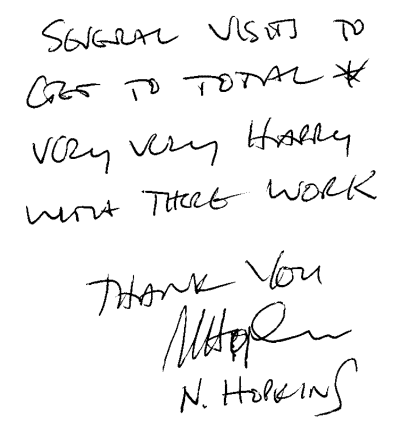 SEVERAL VISITS TO
GET TO TOTAL *
VERY VERY HAPPY
WITH THERE WORK
THANK YOU
N. HOPKINS